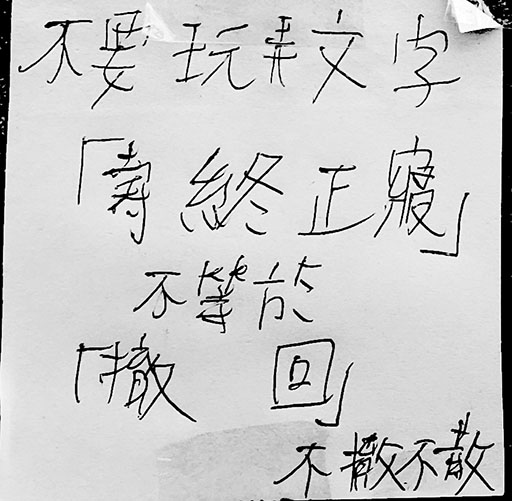 不要玩弄文字
「壽終正寢」
不等於
「撤 回」
不撤不散